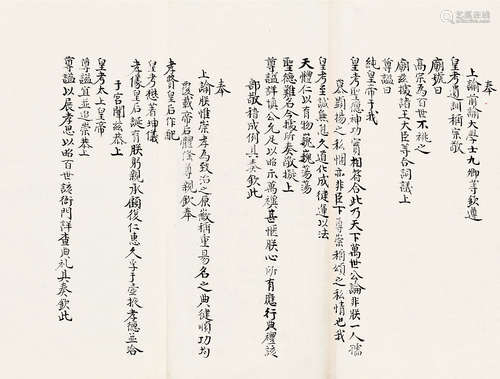 奉
上諭前諭大學士九卿等欽遵
皇考遺詔稱崇敬
廟號曰
高宗為百世不祧之
廟茲據諸王大臣等合詞議上
尊謚曰
純皇帝于我
皇考聖應神功實相符合此乃天下萬世公論非朕一人孺
慕顯揚之私悃亦非臣下尊崇稱頌之私情也我
皇考至誠無息久道化成健運以法
天體仁以育物巍巍蕩蕩
聖德難名今據所奏敬擬上
尊謚詳慎公允足以昭示萬禩甚愜朕心所有應行典禮該
部敬稽成例具奏欽此
奉
上諭朕惟崇孝為致治之原敬稱重易名之典健順功均
覆載帝后體隆尊親欽奉
孝賢皇后作配
皇考懋著坤儀
孝儀皇后誕育朕躬親承顧復仁惠久孚于壼掖孝德並洽
于宮闈茲恭上
皇考太上皇帝
尊謚宜並追崇恭上
尊謚以展孝思以昭百世該衙門詳查典礼具奏欽此